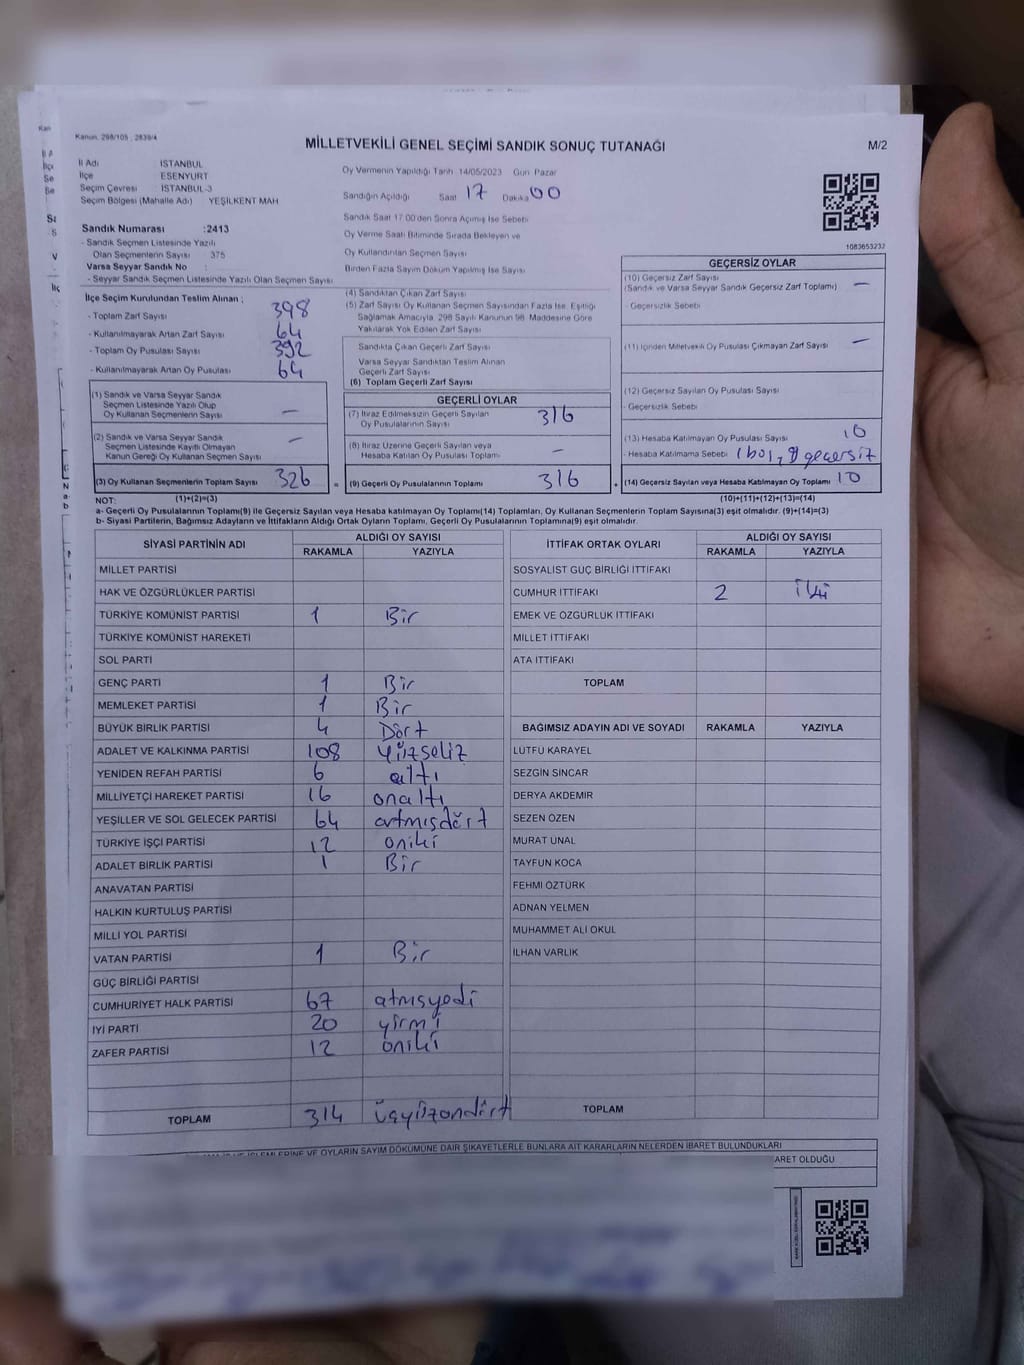 Kanun, 298/105 , 2839/4
MİLLETVEKİLİ GENEL SEÇİMİ SANDIK SONUÇ TUTANAĞI
M/2
İl Adı İSTANBUL
İlçe ESENYURT
Seçim Çevresi İSTANBUL-3
Seçim Bölgesi (Mahalle Adı) YEŞİLKENT MAH
Oy Vermenin Yapıldığı Tarih 14/05/2023 Gün Pazar
Sandığın Açıldığı Saat 17 Dakika 00
Sandık Saat 17:00'den Sonra Açmış İse Sebebi
Oy Verme Saati Bitiminde Sırada Bekleyen ve
Oy Kullandırılan Seçmen Sayısı
Birden Fazla Sayım Döküm Yapılmış İse Sayısı
1083653232
Sandık Numarası :2413
- Sandık Seçmen Listesinde Yazılı
Olan Seçmenlerin Sayısı 375
Varsa Seyyar Sandık No :
- Seyyar Sandık Seçmen Listesinde Yazılı Olan Seçmen Sayısı
İlçe Seçim Kurulundan Teslim Alınan ;
- Toplam Zarf Sayısı 398
- Kullanılmayarak Artan Zarf Sayısı 64
- Toplam Oy Pusulası Sayısı 392
- Kullanılmayarak Artan Oy Pusulası 64
(1) Sandık ve Varsa Seyyar Sandık
Seçmen Listesinde Yazılı Olup
Oy Kullanan Seçmenlerin Sayısı —
(2) Sandık ve Varsa Seyyar Sandık
Seçmen Listesinde Kayıtlı Olmayan
Kanun Gereği Oy Kullanan Seçmen Sayısı —
(3) Oy Kullanan Seçmenlerin Toplam Sayısı 326
(4) Sandıktan Çıkan Zarf Sayısı
(5) Zarf Sayısı Oy Kullanan Seçmen Sayısından Fazla İse, Eşitliği
Sağlamak Amacıyla, 298 Sayılı Kanunun 98. Maddesine Göre
Yakılarak Yok Edilen Zarf Sayısı
Sandıkta Çıkan Geçerli Zarf Sayısı
Varsa Seyyar Sandıktan Teslim Alınan
Geçerli Zarf Sayısı
(6) Toplam Geçerli Zarf Sayısı
GEÇERLİ OYLAR
(7) İtiraz Edilmeksizin Geçerli Sayılan
Oy Pusulalarının Sayısı 316
(8) İtiraz Üzerine Geçerli Sayılan veya
Hesaba Katılan Oy Pusulası Toplamı —
= (9) Geçerli Oy Pusulalarının Toplamı 316
GEÇERSİZ OYLAR
(10) Geçersiz Zarf Sayısı
(Sandık ve Varsa Seyyar Sandık Geçersiz Zarf Toplamı) —
- Geçersizlik Sebebi
(11) İçinden Milletvekili Oy Pusulası Çıkmayan Zarf Sayısı —
(12) Geçersiz Sayılan Oy Pusulası Sayısı
- Geçersizlik Sebebi
(13) Hesaba Katılmayan Oy Pusulası Sayısı 10
- Hesaba Katılmama Sebebi 1 boş, 9 geçersiz
+ (14) Geçersiz Sayılan veya Hesaba Katılmayan Oy Toplamı 10
NOT: (1)+(2)=(3) (10)+(11)+(12)+(13)=(14)
a- Geçerli Oy Pusulalarının Toplamı(9) ile Geçersiz Sayılan veya Hesaba katılmayan Oy Toplamı(14) Toplamları, Oy Kullanan Seçmenlerin Toplam Sayısına(3) eşit olmalıdır. (9)+(14)=(3)
b- Siyasi Partilerin, Bağımsız Adayların ve İttifakların Aldığı Ortak Oyların Toplamı, Geçerli Oy Pusulalarının Toplamına(9) eşit olmalıdır.
SİYASİ PARTİNİN ADI ALDIĞI OY SAYISI
RAKAMLA YAZIYLA
MİLLET PARTİSİ
HAK VE ÖZGÜRLÜKLER PARTİSİ
TÜRKİYE KOMÜNİST PARTİSİ 1 Bir
TÜRKİYE KOMÜNİST HAREKETİ
SOL PARTİ
GENÇ PARTİ 1 Bir
MEMLEKET PARTİSİ 1 Bir
BÜYÜK BİRLİK PARTİSİ 4 Dört
ADALET VE KALKINMA PARTİSİ 108 Yüzseliz
YENİDEN REFAH PARTİSİ 6 altı
MİLLİYETÇİ HAREKET PARTİSİ 16 onaltı
YEŞİLLER VE SOL GELECEK PARTİSİ 64 artmışdört
TÜRKİYE İŞÇİ PARTİSİ 12 oniki
ADALET BİRLİK PARTİSİ 1 Bir
ANAVATAN PARTİSİ
HALKIN KURTULUŞ PARTİSİ
MİLLİ YOL PARTİSİ
VATAN PARTİSİ 1 Bir
GÜÇ BİRLİĞİ PARTİSİ
CUMHURİYET HALK PARTİSİ 67 atmışyedi
İYİ PARTİ 20 yirmi
ZAFER PARTİSİ 12 oniki
TOPLAM 314 üçyüzondört
İTTİFAK ORTAK OYLARI ALDIĞI OY SAYISI
RAKAMLA YAZIYLA
SOSYALİST GÜÇ BİRLİĞİ İTTİFAKI
CUMHUR İTTİFAKI 2 iki
EMEK VE ÖZGÜRLÜK İTTİFAKI
MİLLET İTTİFAKI
ATA İTTİFAKI
TOPLAM
BAĞIMSIZ ADAYIN ADI VE SOYADI RAKAMLA YAZIYLA
LÜTFÜ KARAYEL
SEZGİN SİNCAR
DERYA AKDEMİR
SEZEN ÖZEN
MURAT ÜNAL
TAYFUN KOCA
FEHMİ ÖZTÜRK
ADNAN YELMEN
MUHAMMET ALİ OKUL
İLHAN VARLIK
TOPLAM
VE OYLARIN SAYIM DÖKÜMÜNE DAİR ŞİKAYETLERLE BUNLARA AİT KARARLARIN NELERDEN İBARET BULUNDUKLARI
ARET OLDUĞU